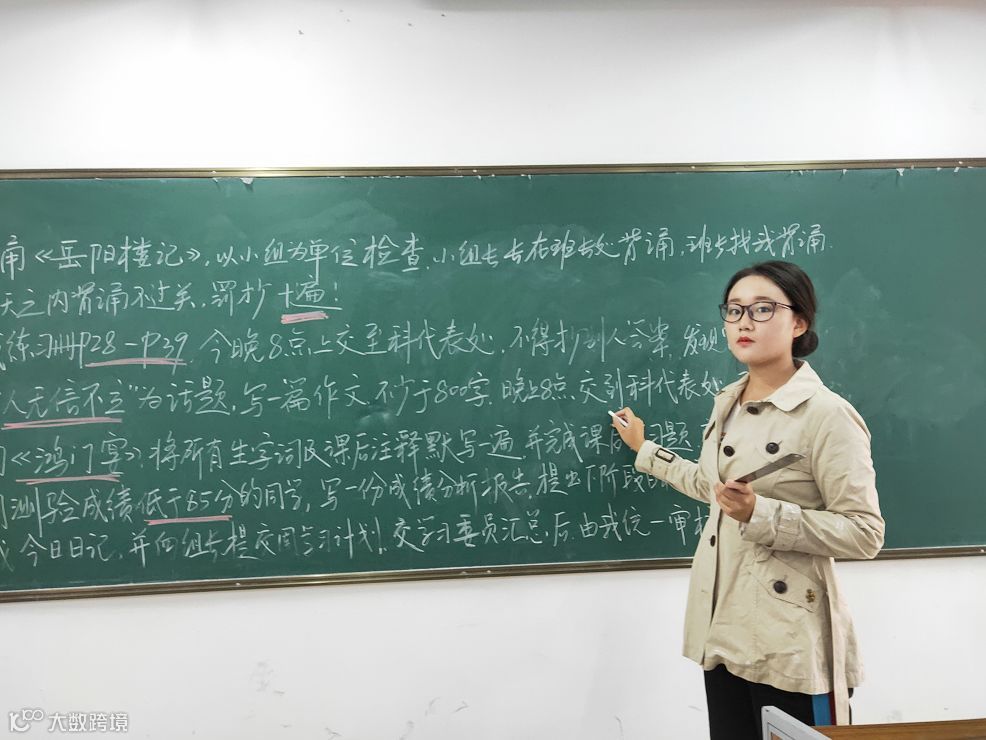 诵《岳阳楼记》,以小组为单位检查,小组长去在班长处背诵,班长找我背诵.
天之内背诵不过关,罚抄十遍!
练习册P28-P29 今晚8点上交至科代表处,不得抄别人答案,发现
人无信不立"为话题,写一篇作文,不少于800字,晚上8点交到科代表处
《鸿门宴》,将所有生字词及课后注释默写一遍,并完成课后习题,
测验成绩低于85分的同学,写一份成绩分析报告,提出下阶段
今日日记,并向组长提交周学习计划,交学习委员汇总后,由我统一审核
大数跨境